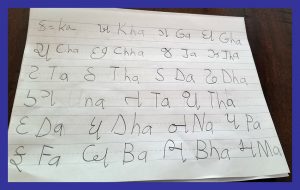 ક=ka ખ Kha ગ Ga ઘ Gha
ચ Cha છ Chha જ Ja ઝ Jha
ટ Ta ઠ Tha ડ Da ઢ Dha
ણ na ત Ta થ Tha
દ Da ધ Dha ન Na પ Pa
ફ Fa બ Ba ભ Bha મ Ma